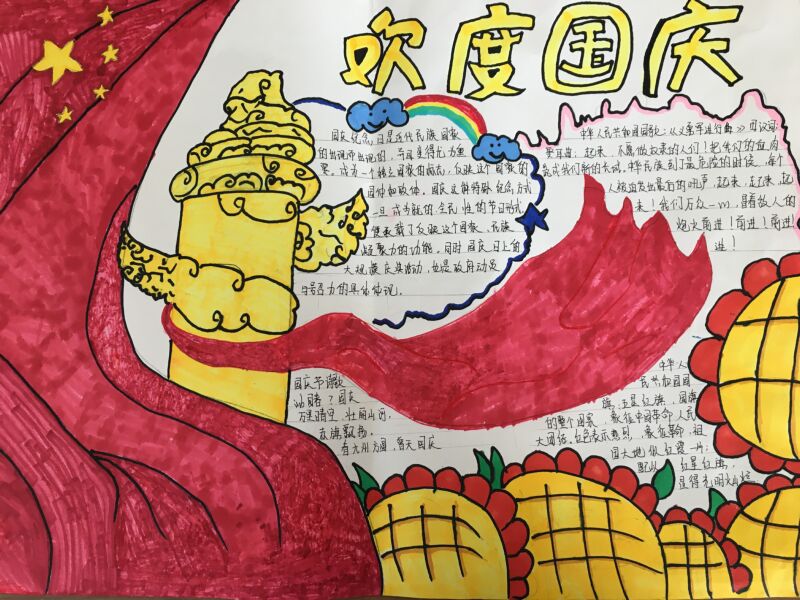 欢度国庆
国庆纪念日是近代民族国家
的出现而出现的，并且变得尤为重
要。成为一个独立国家的标志，反映这个国家的
国体和政体。国庆这种特殊纪念方式
一旦成为新的、全民性的节日形式
便承载了反映这个国家、民族
凝聚力的功能。同时国庆日上的
大规模庆典活动，也是政府动员
与号召力的具体体现。
中华人民共和国国歌：《义勇军进行曲》
起来，不愿做奴隶的人们！把我们的血肉
筑成我们新的长城，中华民族到了最危险的时候，每个
人被迫发出最后的吼声，起来，起来，起
来！我们万众一心，冒着敌人的
炮火前进！前进！前进！
进！
国庆节诗歌
国庆
万里晴空，壮丽山河，
红旗飘扬。
有九州方圆，普天国庆
中华人
民共和国国
旗：五星红旗，国旗
的整个图案，象征中国革命人民
大团结，红色表示热烈，象征革命，祖
国大地似红霞一片，
配以 红星红旗，
显得光明灿烂